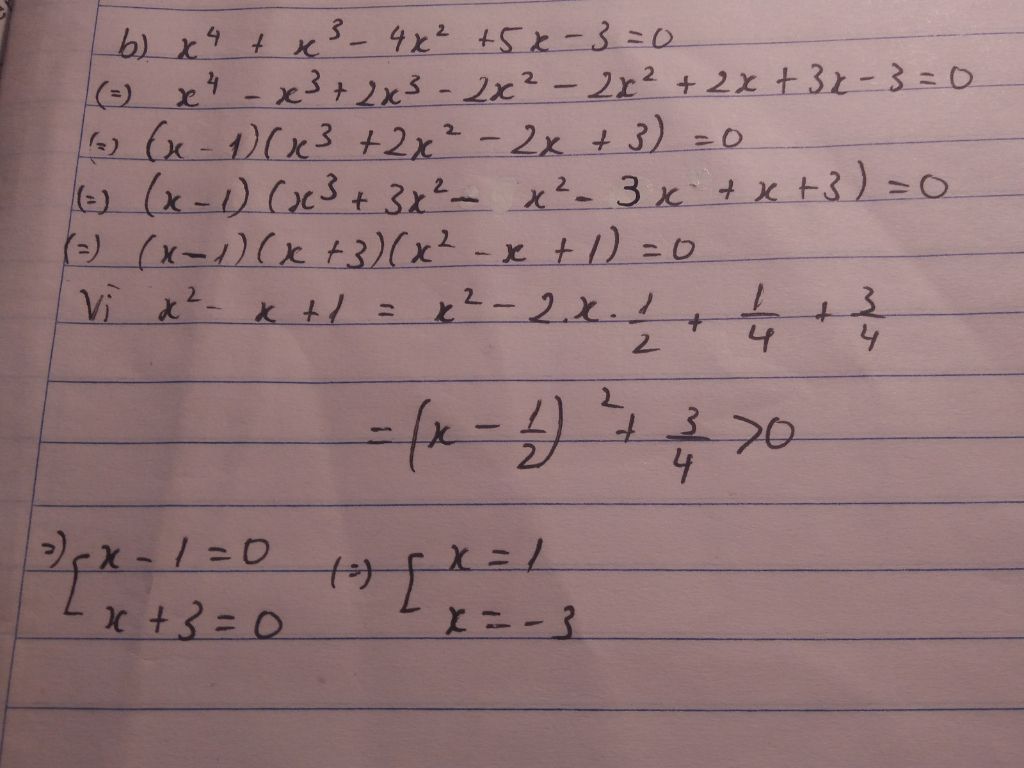 b) x⁴ + x³ - 4x² + 5x - 3 = 0
(=) x⁴ - x³ + 2x³ - 2x² - 2x² + 2x + 3x - 3 = 0
(=) (x - 1)(x³ + 2x² - 2x + 3) = 0
(=) (x - 1)(x³ + 3x² - x² - 3x + x + 3) = 0
(=) (x - 1)(x + 3)(x² - x + 1) = 0
Vì x² - x + 1 = x² - 2.x.1/2 + 1/4 + 3/4
= (x - 1/2)² + 3/4 > 0
=) [ x - 1 = 0 (=) [ x = 1
x + 3 = 0 x = -3